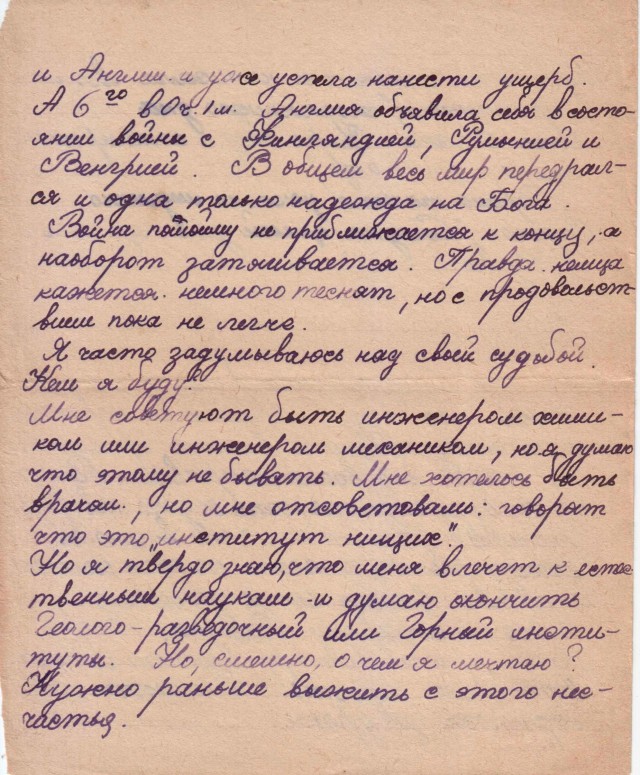 и Англии. и уже успела нанести ущерб.
А 6го в 0ч. 1м. Англия объявила себя в состо-
янии войны с Финляндией, Румынией и
Венгрией. В общем весь мир передрал-
ся и одна только надежда на Бога.
Война потому не приближается к концу, а
наоборот затягивается. Правда немца
кажется немного теснят, но с продовольст-
вием пока не легче.
Я часто задумываюсь над своей судьбой.
Кем я буду?
Мне советуют быть инженером хими-
ком или инженером механиком, но я думаю
что этому не бывать. Мне хотелось быть
врачом, но мне отсоветовали: говорят
что это „институт нищих".
Но я твердо знаю, что меня влечет к естес-
твенным наукам и думаю окончить
Геолого-разведочный или Горный инсти-
туты. Но, смешно, о чем я мечтаю?
Нужно раньше выжить с этого нес-
частья.